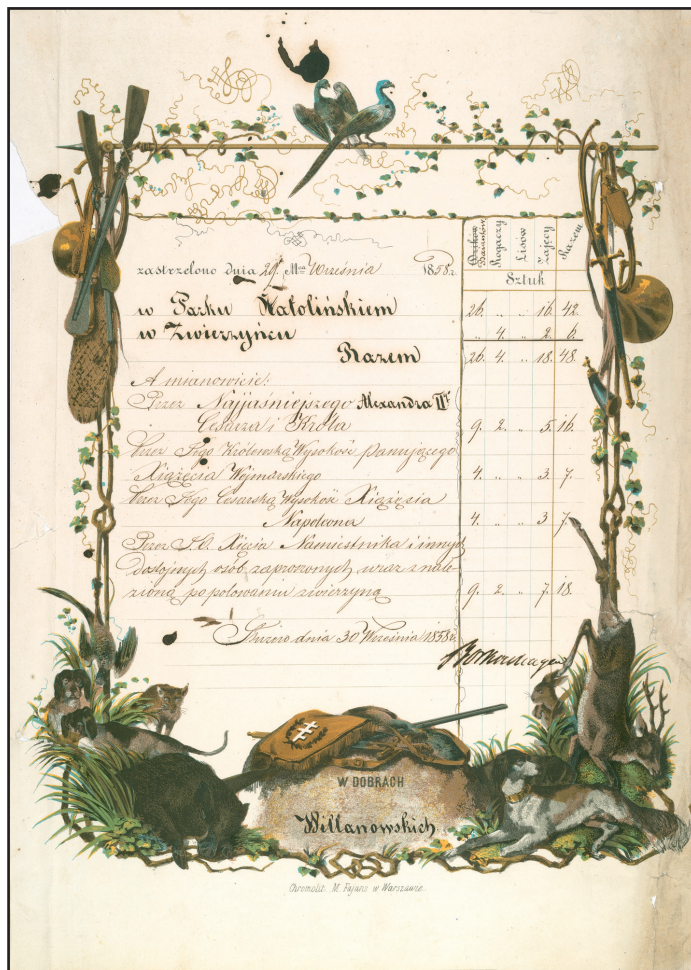 Dzików Danielów Rogaczy Lisów Zajęcy Razem
zastrzelono dnia 29 Września 1858 r.
Sztuk
w Parku Natolińskiem 26. „ „ 16. 42.
w Zwierzyńcu „ 4. „ 2. 6.
Razem 26. 4. „ 18. 48.
A mianowicie:
Przez Najjaśniejszego Alexandra II
Cesarza i Króla 9. 2. „ 5. 16.
Przez Jego Królewską Wysokość Panującego
Xiążęcia Wejmarskiego 4. „ „ 3. 7.
Przez Jego Cesarską Wysokość Xiążęcia
Napoleona 4. „ „ 3 7.
Przez J.O. Xięcia Namiestnika i innych
dostojnych osób zaproszonych, wraz znale-
zioną po polowaniu zwierzyną 9. 2. „ 7. 18.
dnia 30 Września 1858 r.
W DOBRACH
Willanowskich
Chromolit. M. Fajans w Warszawie.